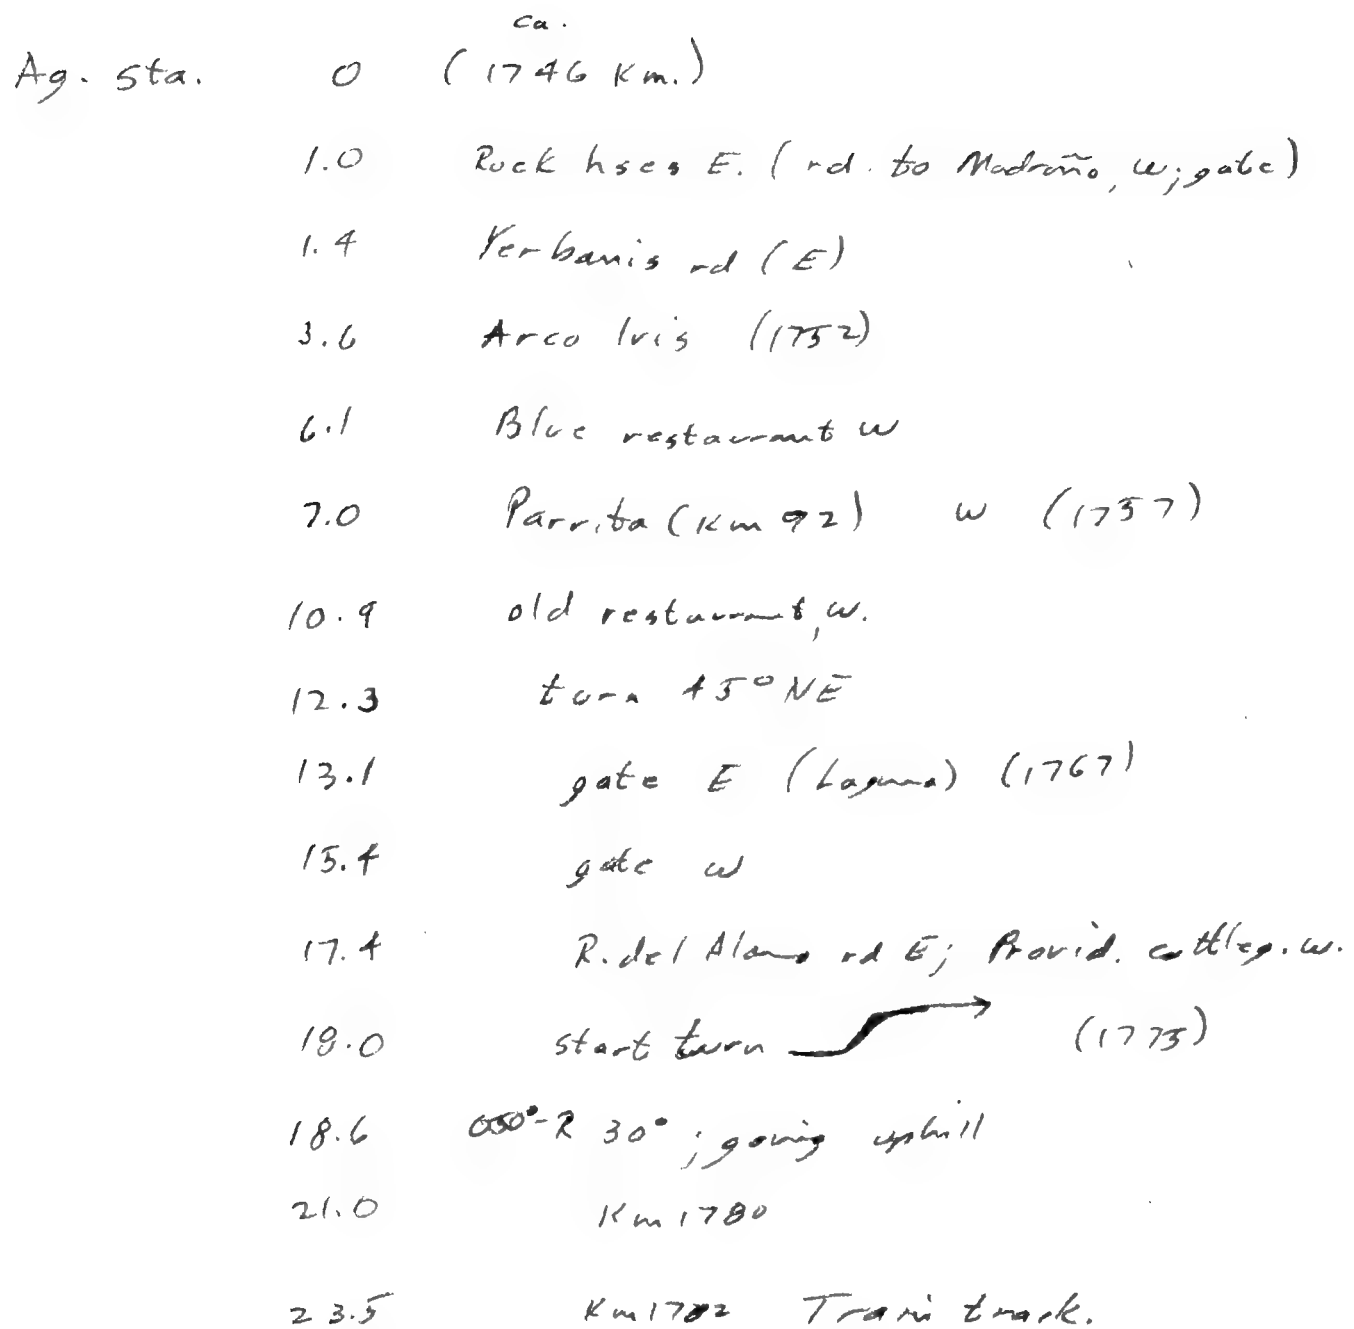 ca.
Ag. sta. 0 (1746 Km.)
1.0 Rock hses E. (rd. to Madroño, W; gate)
1.4 Yerbanis rd (E)
3.6 Arco Iris (1752)
6.1 Blue restaurant W
7.0 Parrita (Km 92) W (1757)
10.9 old restaurant, W.
12.3 turn 45° NE
13.1 gate E (Laguna) (1767)
15.4 gate W
17.4 R. del Alamo rd E; Provid. W.
18.0 start turn → (1775)
18.6 050°-R 30°; going uphill
21.0 Km 1780
23.5 Km 1782 Train track.